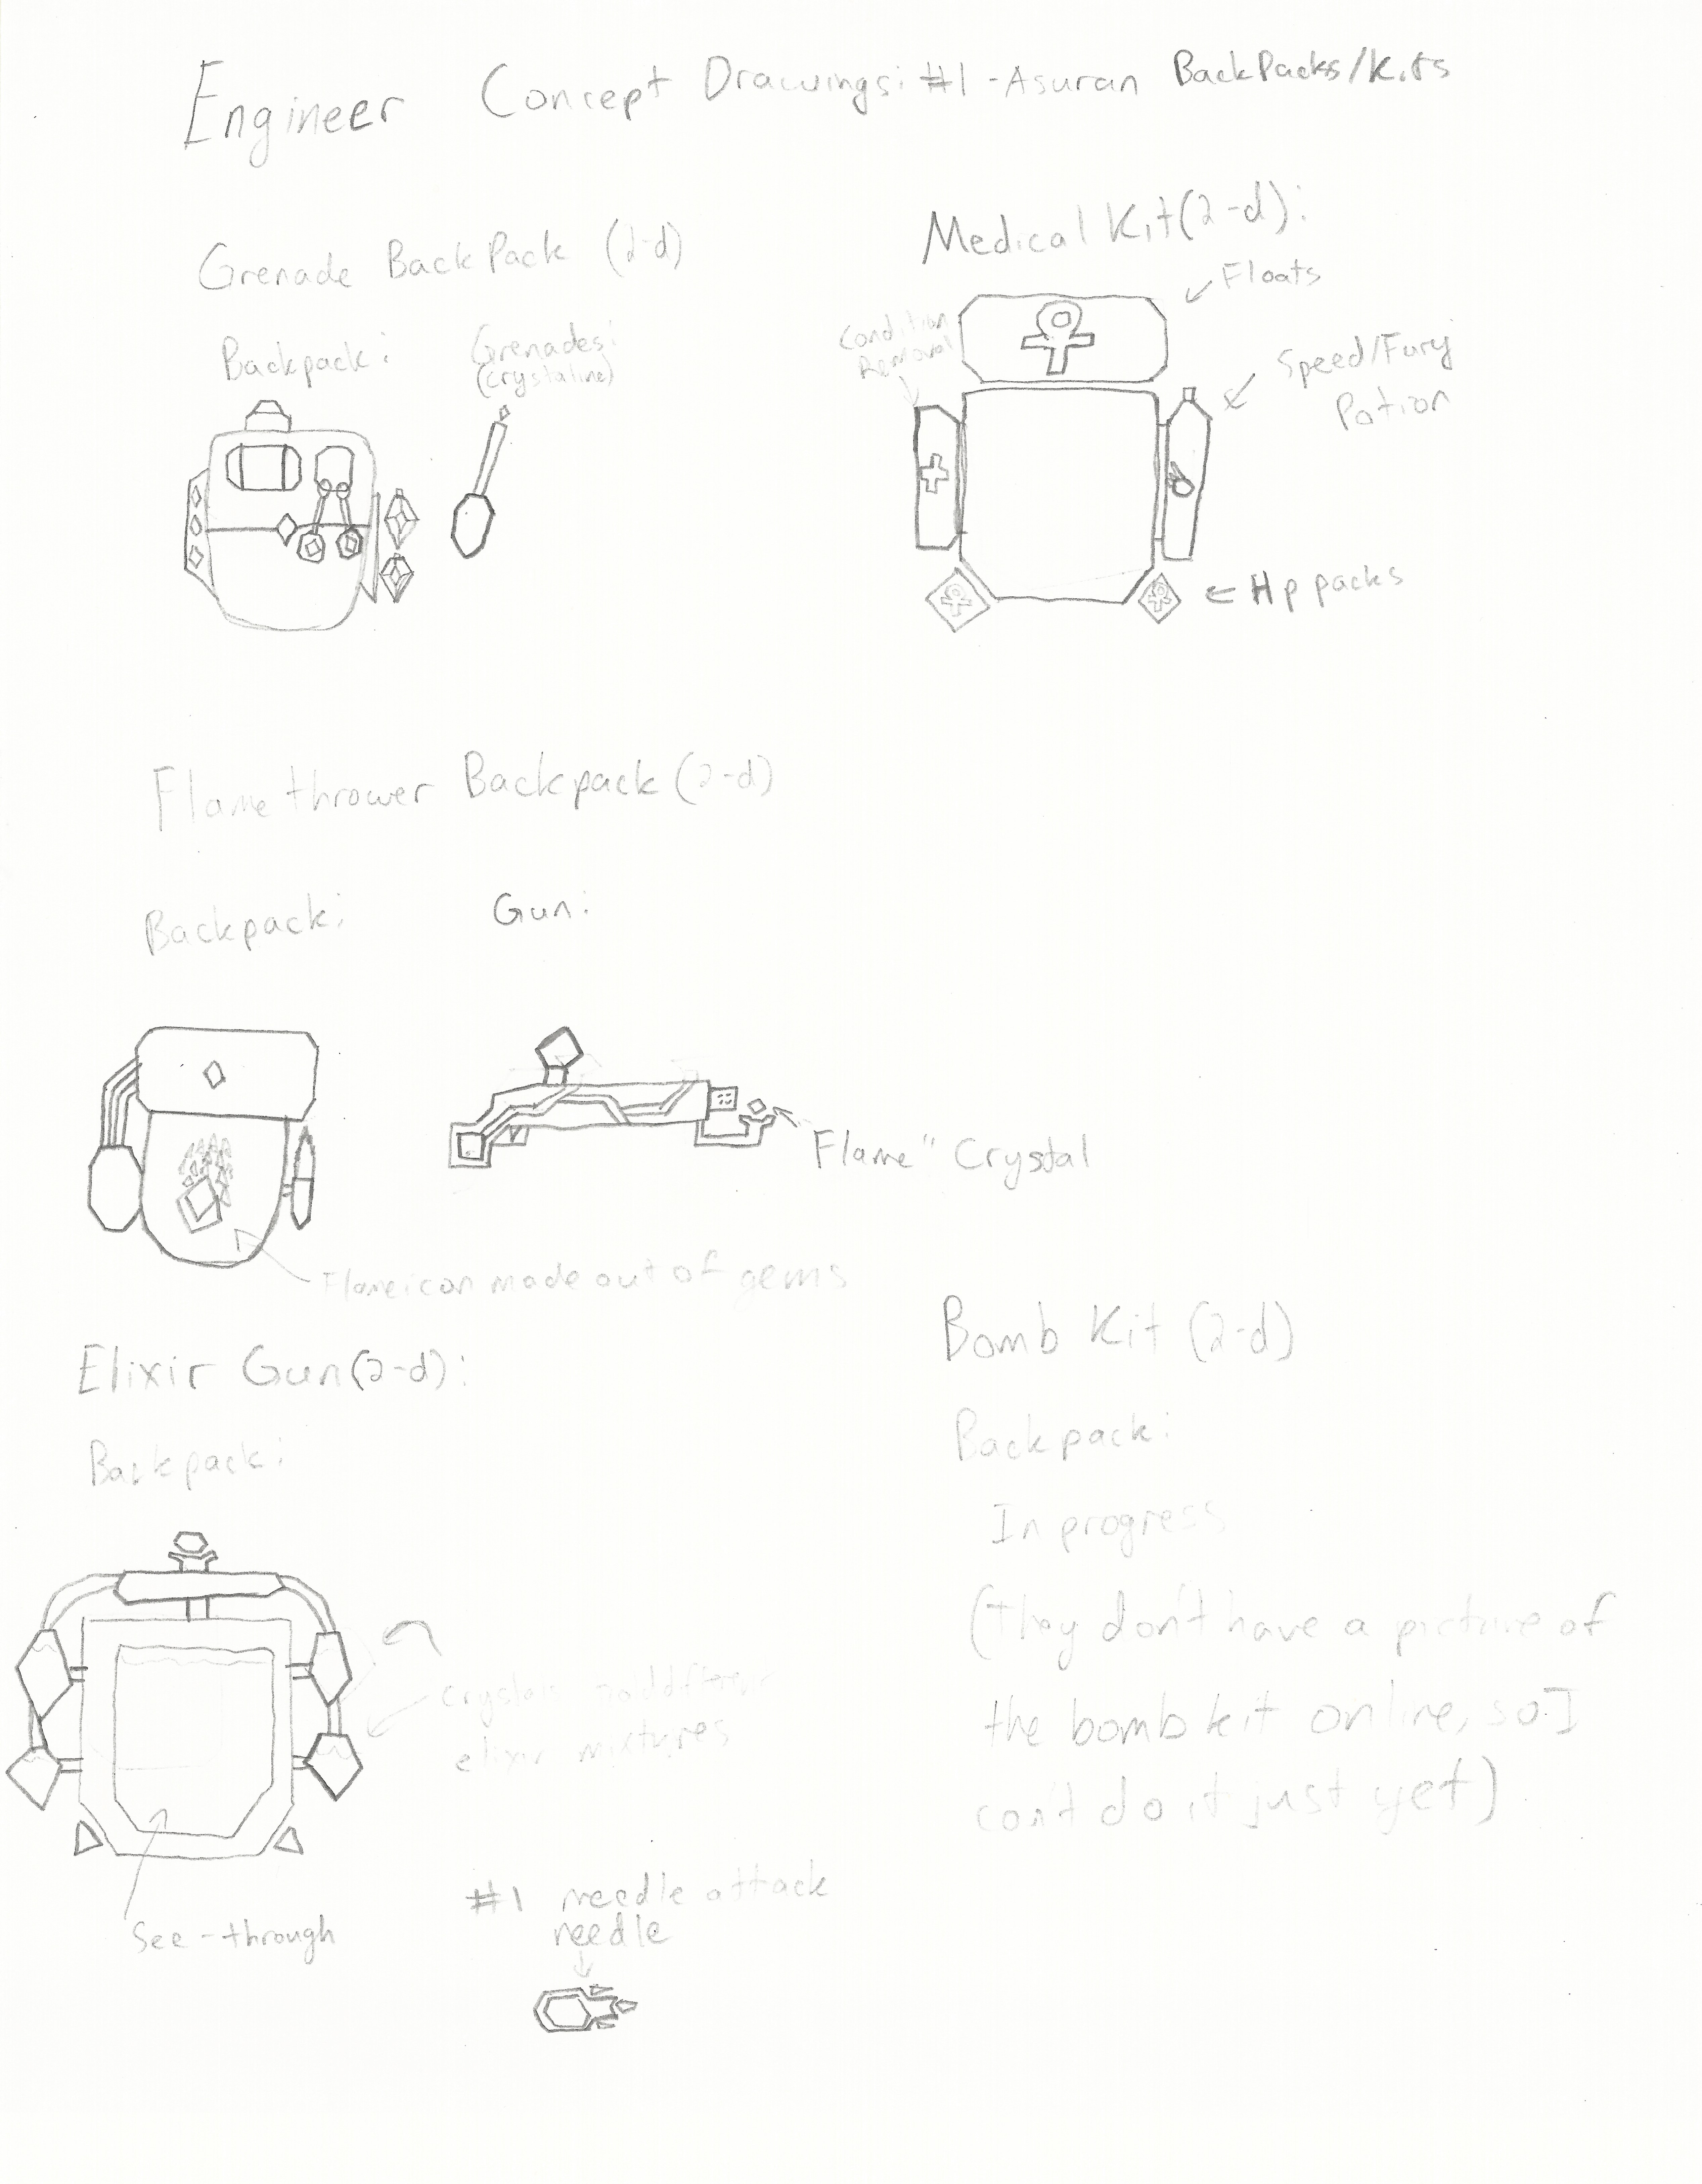 Engineer Concept Drawings: #1 - Asuran BackPacks/Kits
Grenade BackPack (2-d)
Backpack:
Grenades:
(crystaline)
Medical Kit(2-d):
Floats
Condition
Removal
Speed/Fury
Potion
Hp packs
Flamethrower Backpack (2-d)
Backpack:
Gun:
Flame" Crystal
Flame icon made out of gems
Elixir Gun(2-d):
Backpack:
Crystals hold
elixir mixtures
See-through
#1 needle attack
needle
Bomb Kit (2-d)
Backpack:
In progress
(They don't have a picture of
the bomb kit online, so I
can't do it just yet)